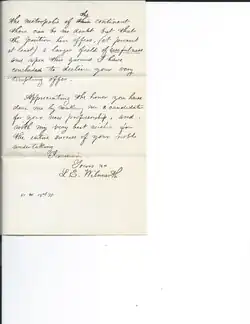 the metropolis of the continent
there can be no doubt but that
the position here offers, (at present
at least) a larger field of usefulness
and upon this ground I have
concluded to decline your very
tempting offer.
Appreciating the honor you have
done me by making me a candidate
for your new professorship, and
with my very best wishes for
the entire success of your noble
undertaking
I remain
Yours &c
L. E. Wilmarth